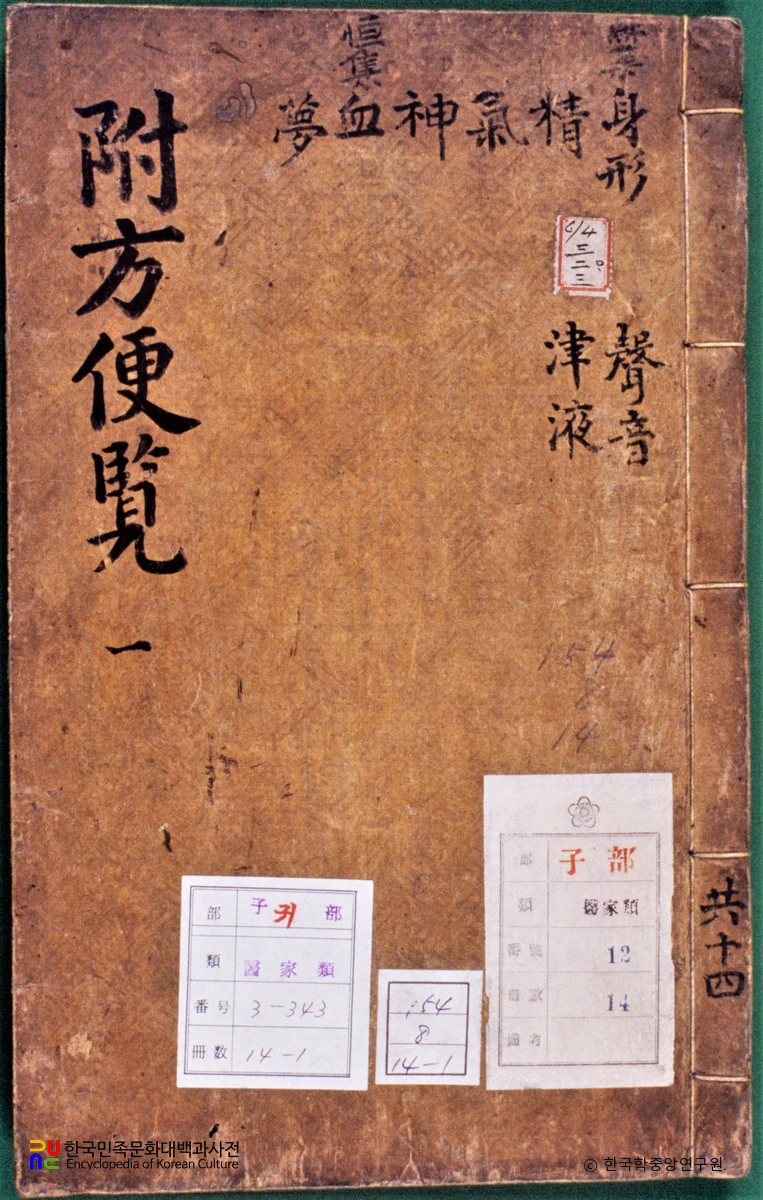 身形
精
氣
神
血
夢
聲音
津液
恒集
附方便覽
一
共十四
6/4
三
二
三
154
8
14
子 部
醫家類
12
14
部 子 귀 部
類 醫家類
番号 3-343
冊数 14-1
154
8
14-1
한국민족문화대백과사전
Encyclopedia of Korean Culture
© 한국학중앙연구원